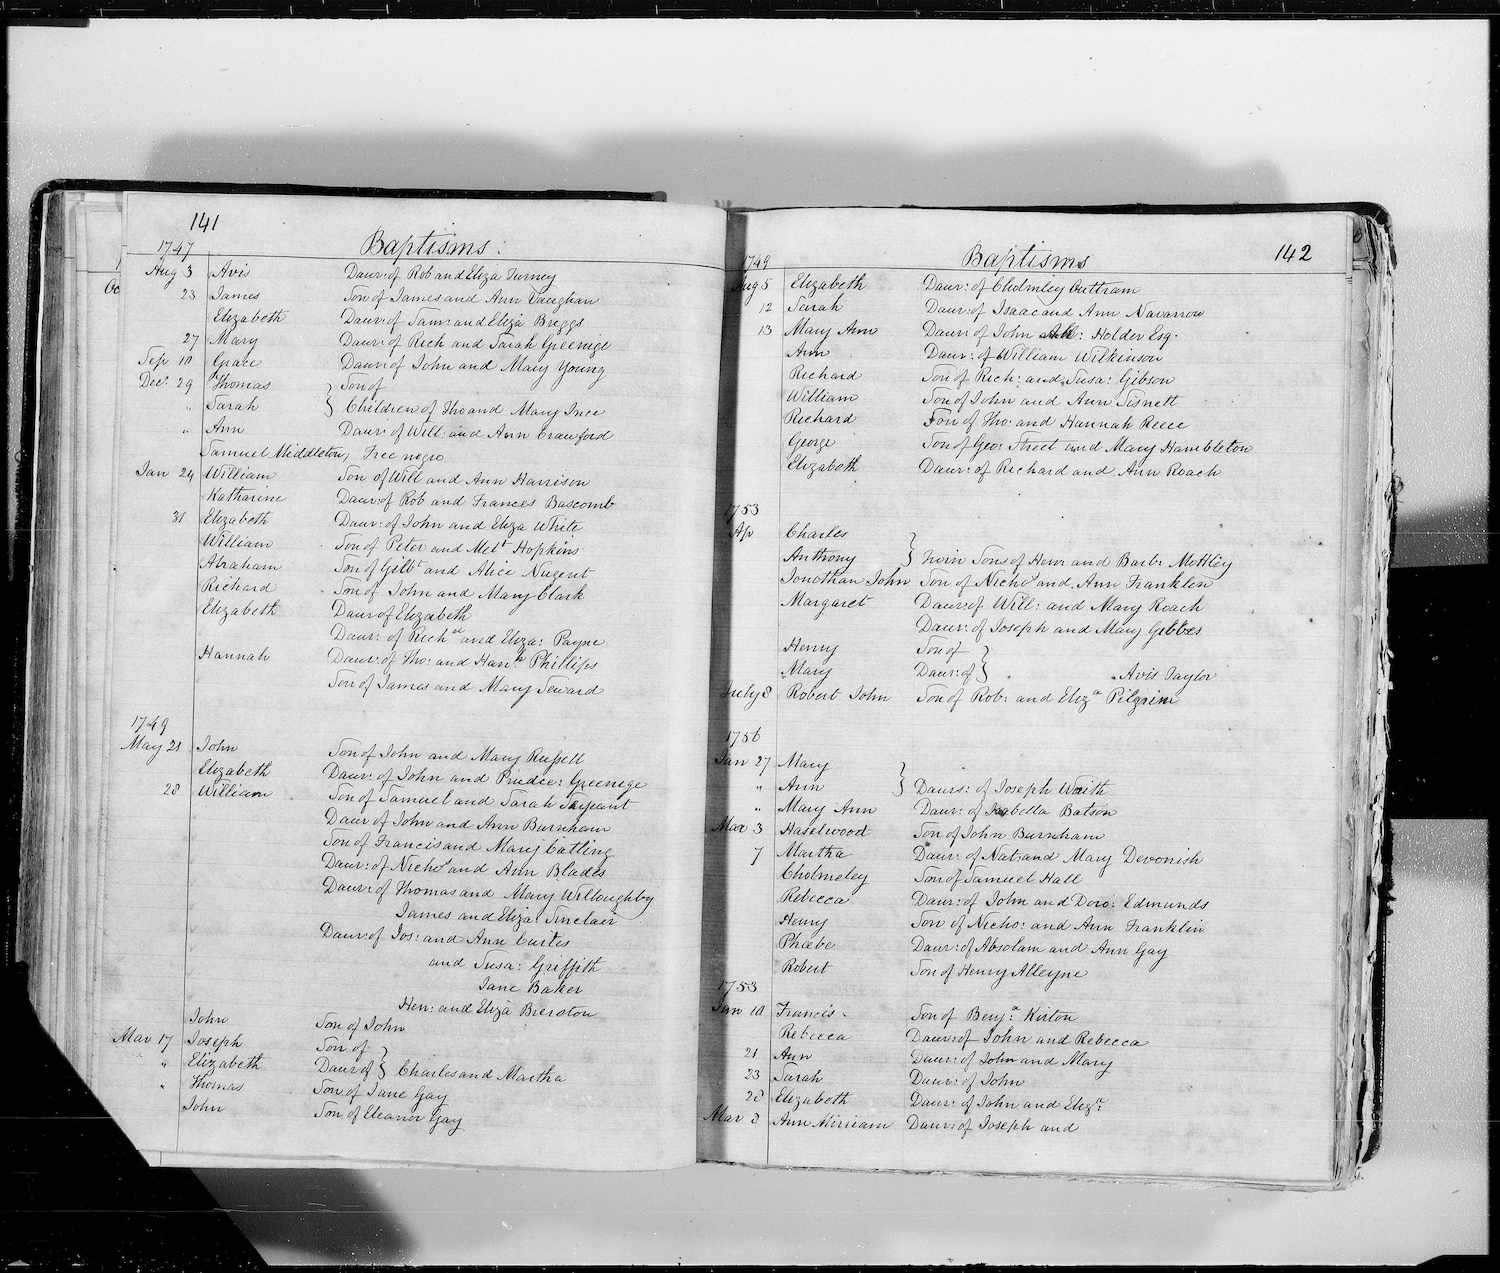 141
Baptisms:
1747
Aug 3 Avis Daur: of Rob and Eliza Turney
23 James Son of James and Ann Vaughan
Elizabeth Daur: of Sam: and Eliza Briggs
27 Mary Daur: of Rich and Sarah Greenige
Sep 10 Grace Daur: of John and Mary Young
Dec: 29 Thomas } Son of
" Sarah } Children of Tho and Mary Ince
" Ann Daur: of Will: and Ann Crawford
Samuel Middleton, Free negro
Jan 24 William Son of Will and Ann Harrison
Katharine Daur: of Rob and Frances Bascomb
31 Elizabeth Daur: of John and Eliza White
William Son of Peter and Melt Hopkins
Abraham Son of Gilbt and Alice Nugent
Richard Son of John and Mary Clark
Elizabeth Daur of Elizabeth
Daur: of Richd and Eliza: Payne
Hannah Daur: of Tho: and Hanh Phillips
Son of James and Mary Seward
1749
May 21 John Son of John and Mary Russell
Elizabeth Daur: of John and Prudce: Greenige
28 William Son of Samuel and Sarah Sarjeant
Daur of John and Ann Burnham
Son of Francis and Mary Catling
Daur: of Nichos and Ann Blades
Daur: of Thomas and Mary Willoughby
James and Eliza: Sinclair
Daur: of Jos: and Ann Curtis
and Susa: Griffith
Jane Baker
Hen: and Eliza Bierston
John Son of John
Mar 17 Joseph Son of }
" Elizabeth Daur of } Charles and Martha
" Thomas Son of Jane Gay
John Son of Eleanor Gay
142
Baptisms
1749
Aug 5 Elizabeth Daur: of Cholmley Cuttram
12 Sarah Daur: of Isaac and Ann Navarrow
13 Mary Ann Daur: of John All: Holder Esq.
Ann Daur: of William Wilkinson
Richard Son of Rich: and Susa: Gibson
William Son of John and Ann Sisnett
Richard Son of Tho: and Hannah Reece
George Son of Geo: Street and Mary Hambleton
Elizabeth Daur: of Richard and Ann Roach
1753
Ap Charles }
Anthony } Twin Sons of Henr and Barb: Mottley
Jonothan John Son of Nichos and Ann Franklin
Margaret Daur: of Will: and Mary Roach
Daur: of Joseph and Mary Gibbes
Henry Son of }
Mary Daur: of } Avis Taylor
July 8 Robert John Son of Rob: and Eliza Pilgrim
1756
Jan 27 Mary }
" Ann } Daurs: of Joseph Waith
" Mary Ann Daur: of Isabella Batson
Mar 3 Haselwood Son of John Burnham
7 Martha Daur: of Nat: and Mary Devonish
Cholmeley Son of Samuel Hall
Rebecca Daur: of John and Doro: Edmunds
Henry Son of Nicho: and Ann Franklin
Phœbe Daur: of Absolam and Ann Gay
Robert Son of Henry Alleyne
1753
Jan 10 Francis Son of Benj:a Kirton
Rebecca Daur: of John and Rebecca
21 Ann Daur: of John and Mary
23 Sarah Daur: of John
28 Elizabeth Daur: of John and Eliza:
Mar 8 Ann Mirriam Daur: of Joseph and